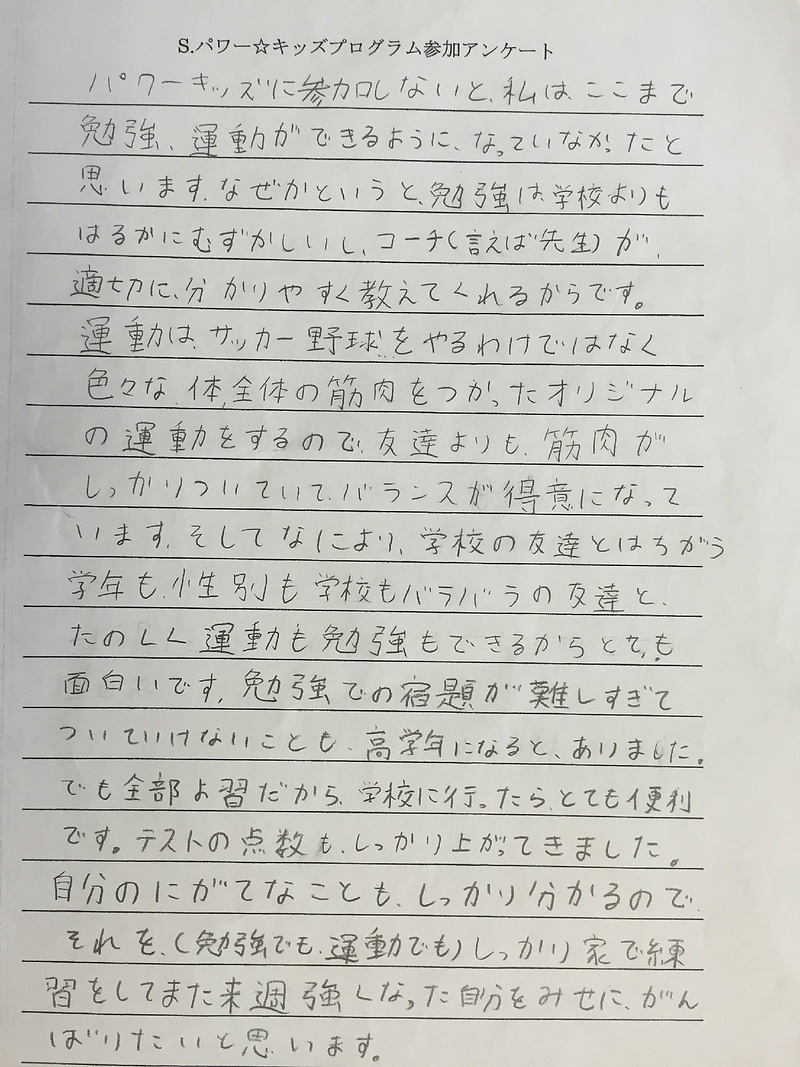 S.パワー☆キッズプログラム参加アンケート
パワーキッズに参加しないと、私は、ここまで
勉強、運動ができるように、なっていなかったと
思います。なぜかというと、勉強は、学校よりも
はるかにむずかしいし、コーチ(言えば先生)が、
適切に、分かりやすく教えてくれるからです。
運動は、サッカー野球をやるわけではなく
色々な、体、全体の筋肉をつかったオリジナル
の運動をするので、友達よりも、筋肉が
しっかりついていて、バランスが得意になって
います。そしてなにより、学校の友達とはちがう
学年も、性別も学校もバラバラの友達と、
たのしく運動も勉強もできるからとても
面白いです。勉強での宿題が難しすぎて
ついていけないことも、高学年になると、ありました。
でも全部よ習だから、学校に行ったら、とても便利
です。テストの点数も、しっかり上がってきました。
自分のにがてなことも、しっかり分かるので、
それを、(勉強でも、運動でも)しっかり家で練
習をしてまた来週強くなった自分をみせに、がん
ばりたいと思います。